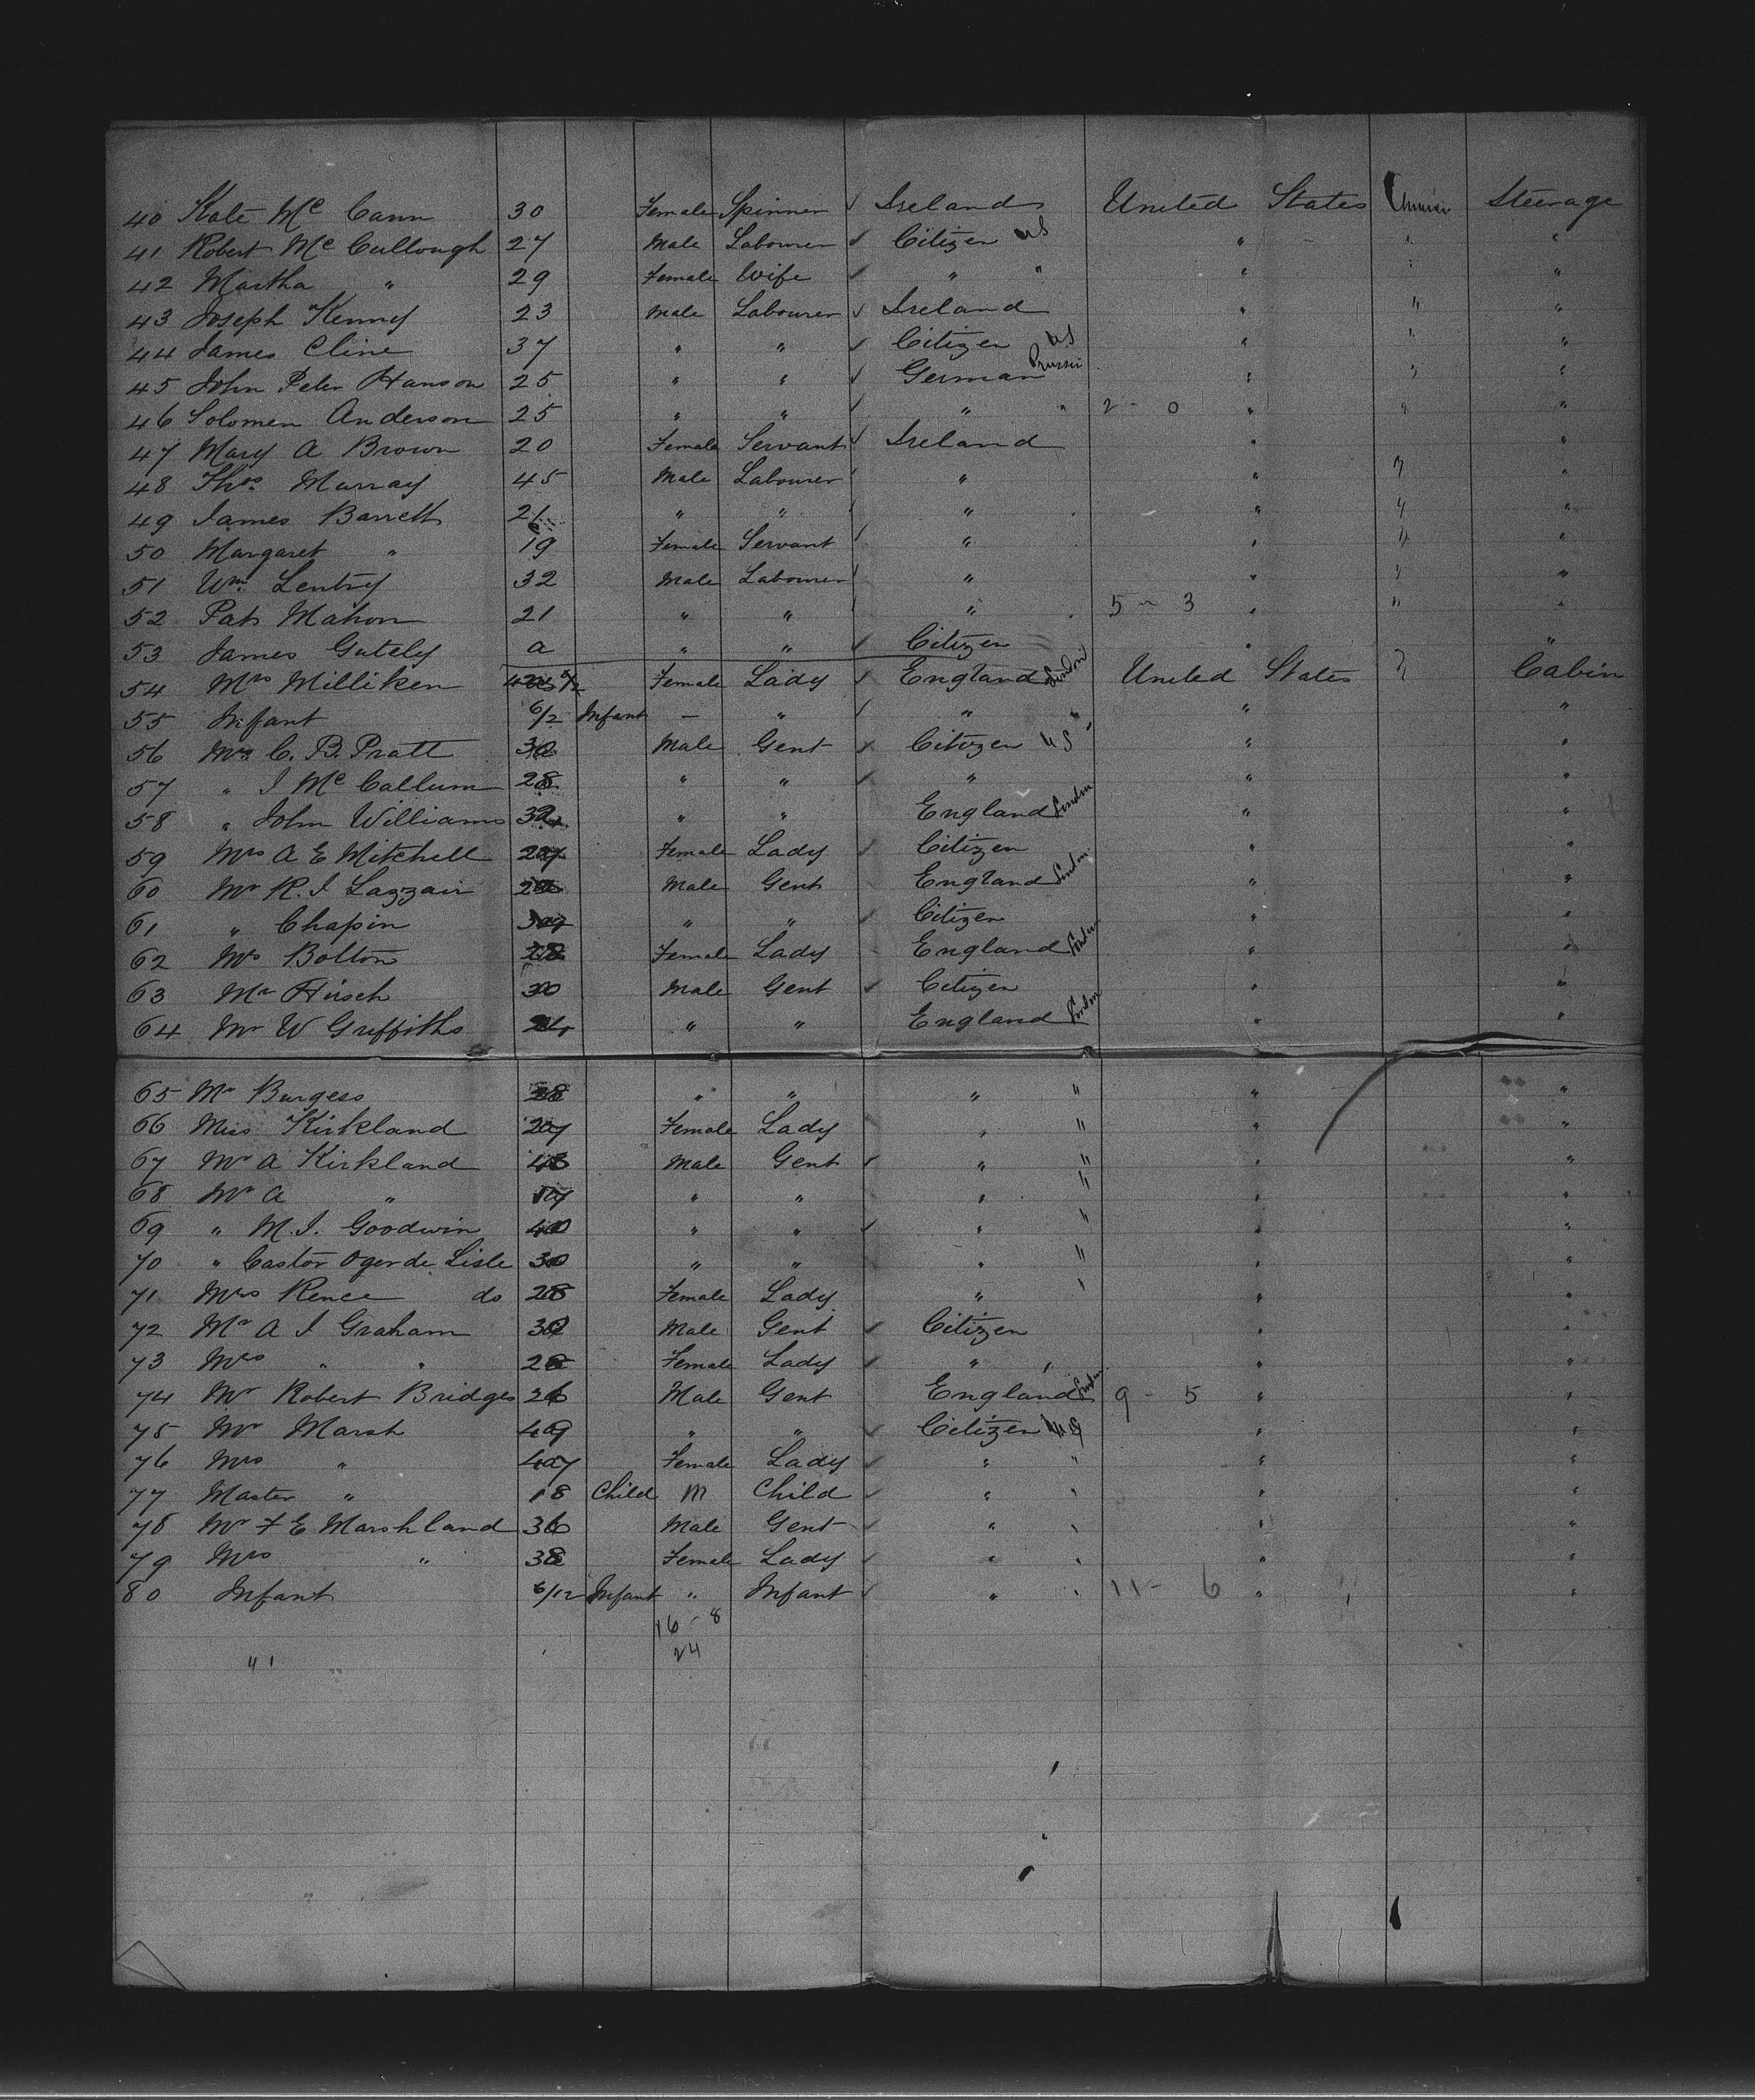 40 Kate Mc Cann 30 Female Spinner ✓ Ireland United States Steerage
41 Robert Mc Cullough 27 Male Labourer ✓ Citizen US " " "
42 Martha " 29 Female Wife ✓ " " " " "
43 Joseph Kenney 23 Male Labourer ✓ Ireland " " "
44 James Cline 37 " " ✓ Citizen US " " "
45 John Peter Hanson 25 " " ✓ German Prussi " " "
46 Solomen Anderson 25 " " ✓ " " 2 - 0 " " "
47 Mary A Brown 20 Female Servant ✓ Ireland " "
48 Thos. Murray 45 Male Labourer " " " "
49 James Barrett 21 " " " " " "
50 Margaret " 19 Female Servant " " " "
51 Wm. Lentry 32 Male Labourer " " " "
52 Pat Mahon 21 " " " 5 - 3 " " "
53 James Gately a " " ✓ Citizen " "
54 Mrs Milliken Female Lady ✓ England London United States " Cabin
55 Infant 6/2 Infant — " ✓ " " " "
56 Mr. C. B. Pratt 30 Male Gent ✓ Citizen US " "
57 " J Mc Callum 28 " " ✓ " " "
58 " John Williams 32 " " England London " "
59 Mrs A E Mitchell 27 Female Lady ✓ Citizen " "
60 Mr R. J. Lazzair Male Gent England London " "
61 " Chapin " " ✓ Citizen " "
62 Mrs Bolton 28 Female Lady England London " "
63 Mr Hirsch 30 Male Gent ✓ Citizen " "
64 Mr W Griffiths 24 " " England London " "
65 Mr Burgess " " " " " "
66 Miss Kirkland 27 Female Lady " " " "
67 Mr A Kirkland Male Gent ✓ " " " "
68 Mr A " " " " " " "
69 " M. J. Goodwin 40 " " ✓ " " " "
70 " Castor Oger de Lisle 30 " " " " " "
71 Mrs Rence do 28 Female Lady " " " "
72 Mr A J Graham 30 Male Gent ✓ Citizen " "
73 Mrs " " 28 Female Lady ✓ " " " "
74 Mr Robert Bridges 26 Male Gent England London 9 - 5 " "
75 Mr Marsh 49 " " ✓ Citizen US " "
76 Mrs " 47 Female Lady ✓ " " " "
77 Master " 18 Child M Child ✓ " " " "
78 Mr F E Marshland 36 Male Gent ✓ " " " "
79 Mrs " 38 Female Lady ✓ " " " "
80 Infant 6/12 Infant " Infant ✓ " " 11 - 6 " "
16 - 8
24